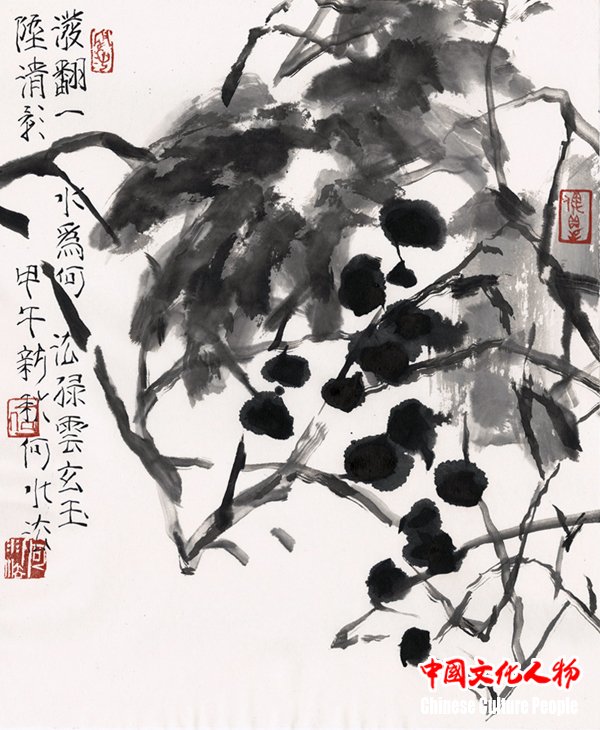 潑翻一水爲何法綠雲玄玉
墜清影
甲午新秋何水法
中國文化人物
Chinese Culture People